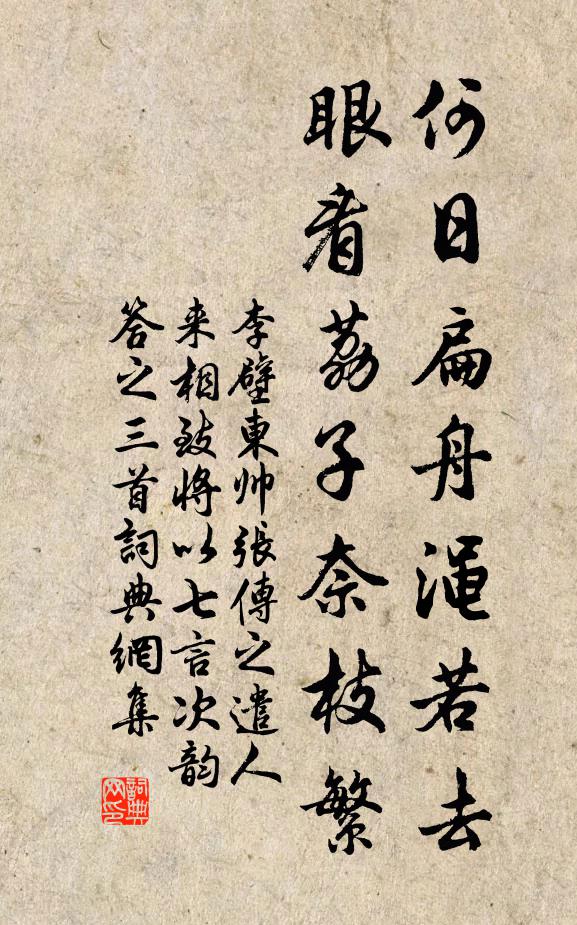 何日扁舟渑若去
眼看荔子奈枝繁
李壁東帅張傳之遣人
来相致将以七言次韵
答之三首詞典網集
詞典网印